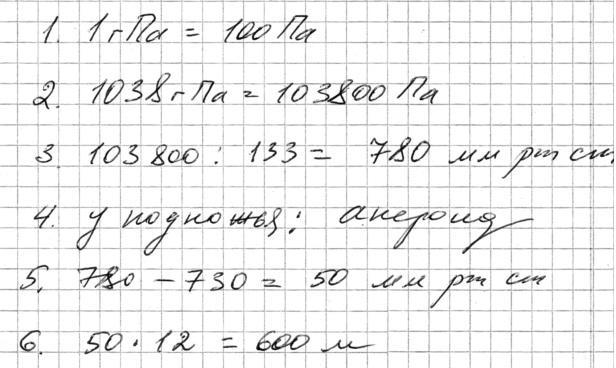 1. 1 гПа = 100 Па
2. 1038 гПа = 103800 Па
3. 103 800 : 133 = 780 мм рт ст
4. у подножья: анероид
5. 780 - 730 = 50 мм рт ст
6. 50 · 12 = 600 м